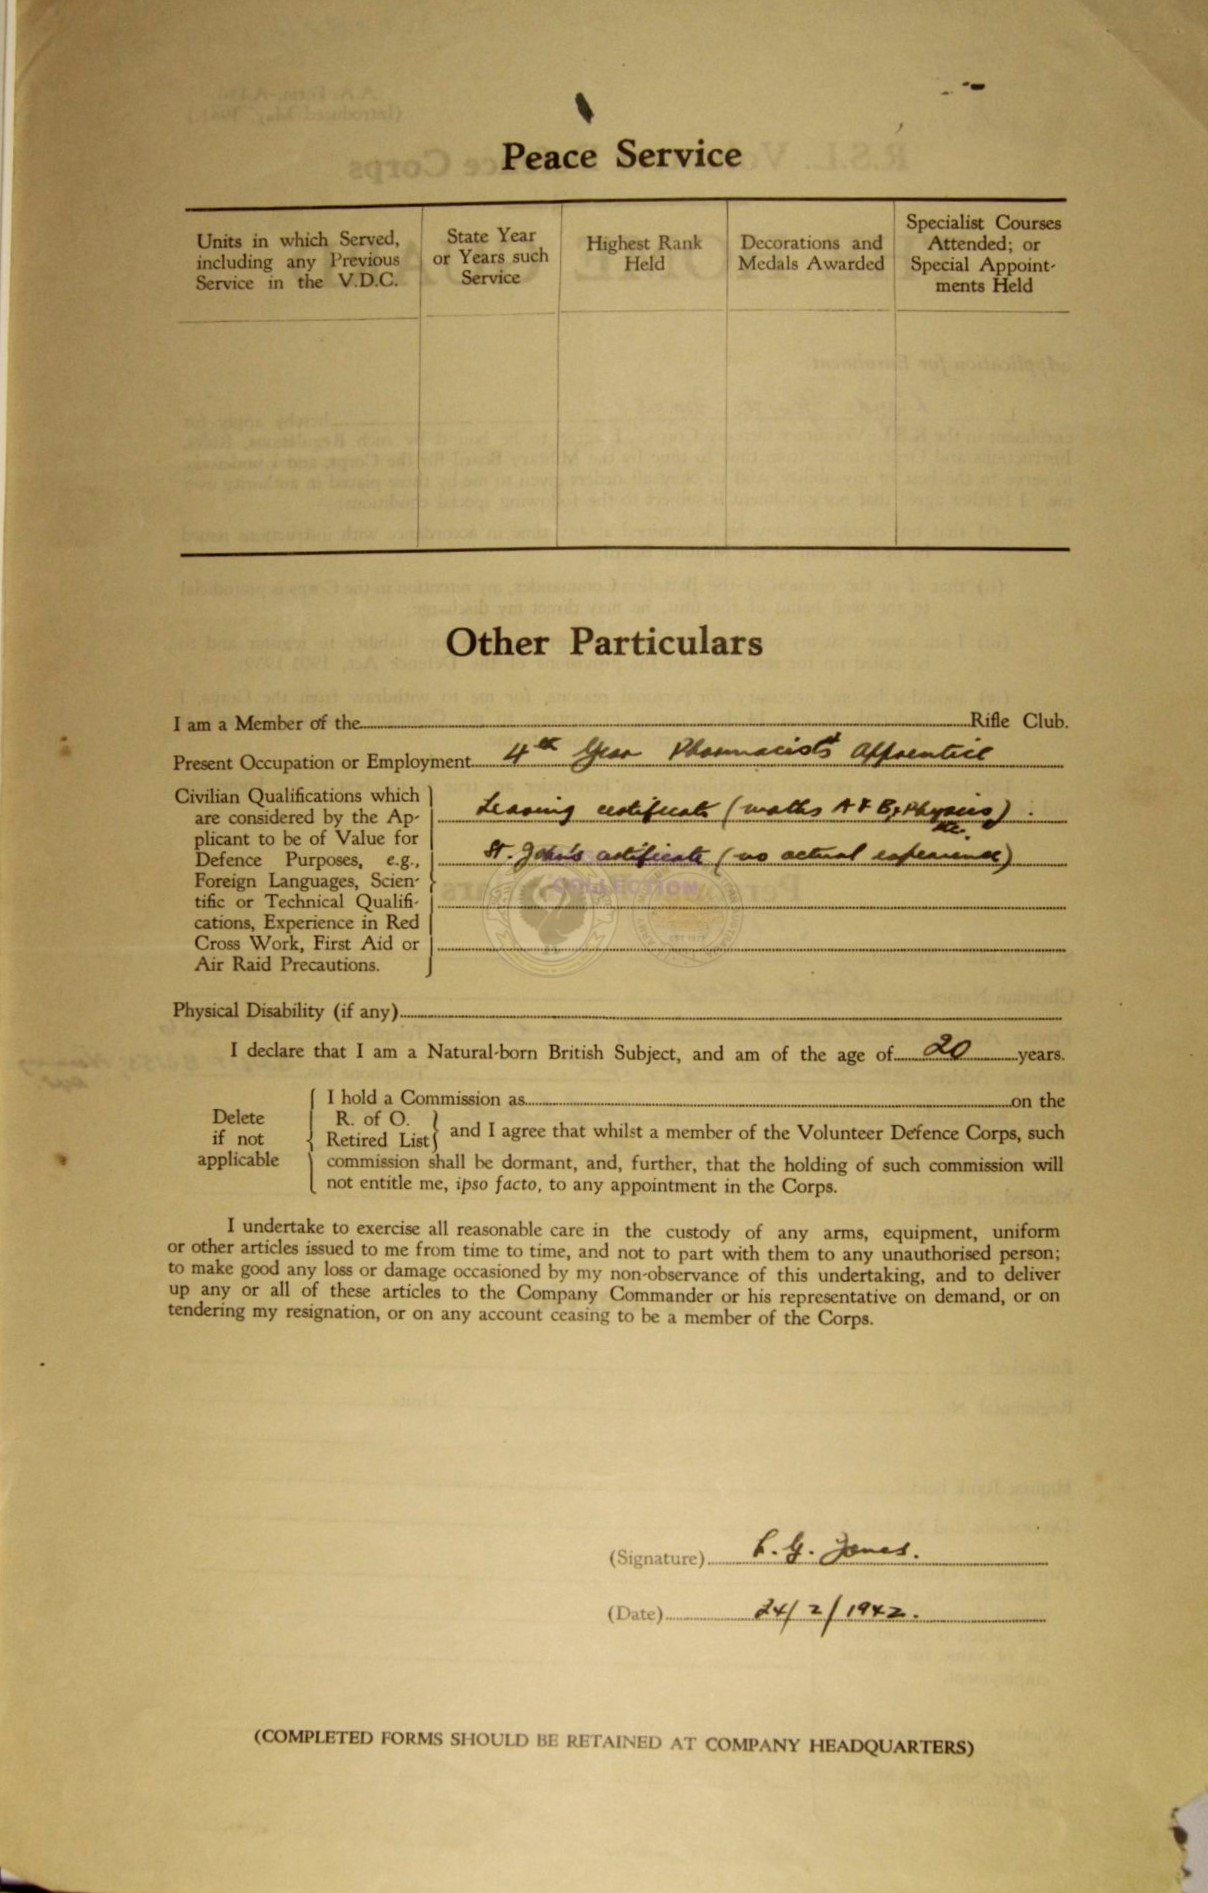 Peace Service
Units in which Served, including any Previous Service in the V.D.C.
State Year or Years such Service
Highest Rank Held
Decorations and Medals Awarded
Specialist Courses Attended; or Special Appoint-ments Held
Other Particulars
I am a Member of the Rifle Club.
Present Occupation or Employment 4th Year Pharmacist's Apprentice
Civilian Qualifications which
are considered by the Ap-
plicant to be of Value for
Defence Purposes, e.g.,
Foreign Languages, Scien-
tific or Technical Qualifi-
cations, Experience in Red
Cross Work, First Aid or
Air Raid Precautions.
Leaving certificate (maths A & B, Physics etc.)
St. John's certificate (no actual experience)
COLLECTION
Physical Disability (if any)
I declare that I am a Natural-born British Subject, and am of the age of 20 years.
Delete
if not
applicable
I hold a Commission as on the
R. of O.
Retired List
and I agree that whilst a member of the Volunteer Defence Corps, such
commission shall be dormant, and, further, that the holding of such commission will
not entitle me, ipso facto, to any appointment in the Corps.
I undertake to exercise all reasonable care in the custody of any arms, equipment, uniform
or other articles issued to me from time to time, and not to part with them to any unauthorised person;
to make good any loss or damage occasioned by my non-observance of this undertaking, and to deliver
up any or all of these articles to the Company Commander or his representative on demand, or on
tendering my resignation, or on any account ceasing to be a member of the Corps.
(Signature) L. G. Jones.
(Date) 24/2/1942.
(COMPLETED FORMS SHOULD BE RETAINED AT COMPANY HEADQUARTERS)